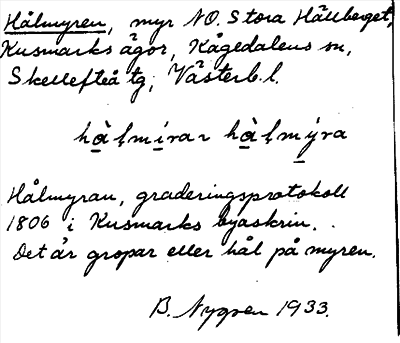 Hålmyren, myr NO. Stora Hällberget,
Kusmarks ägor, Kågedalens sn,
Skellefteå tg, Västerb. l.
hàļmíran hàļmýra
Hålmyran, graderingsprotokoll
1806 i Kusmarks byaskrin.
Det är gropar eller hål på myren.
B. Nygren 1933.